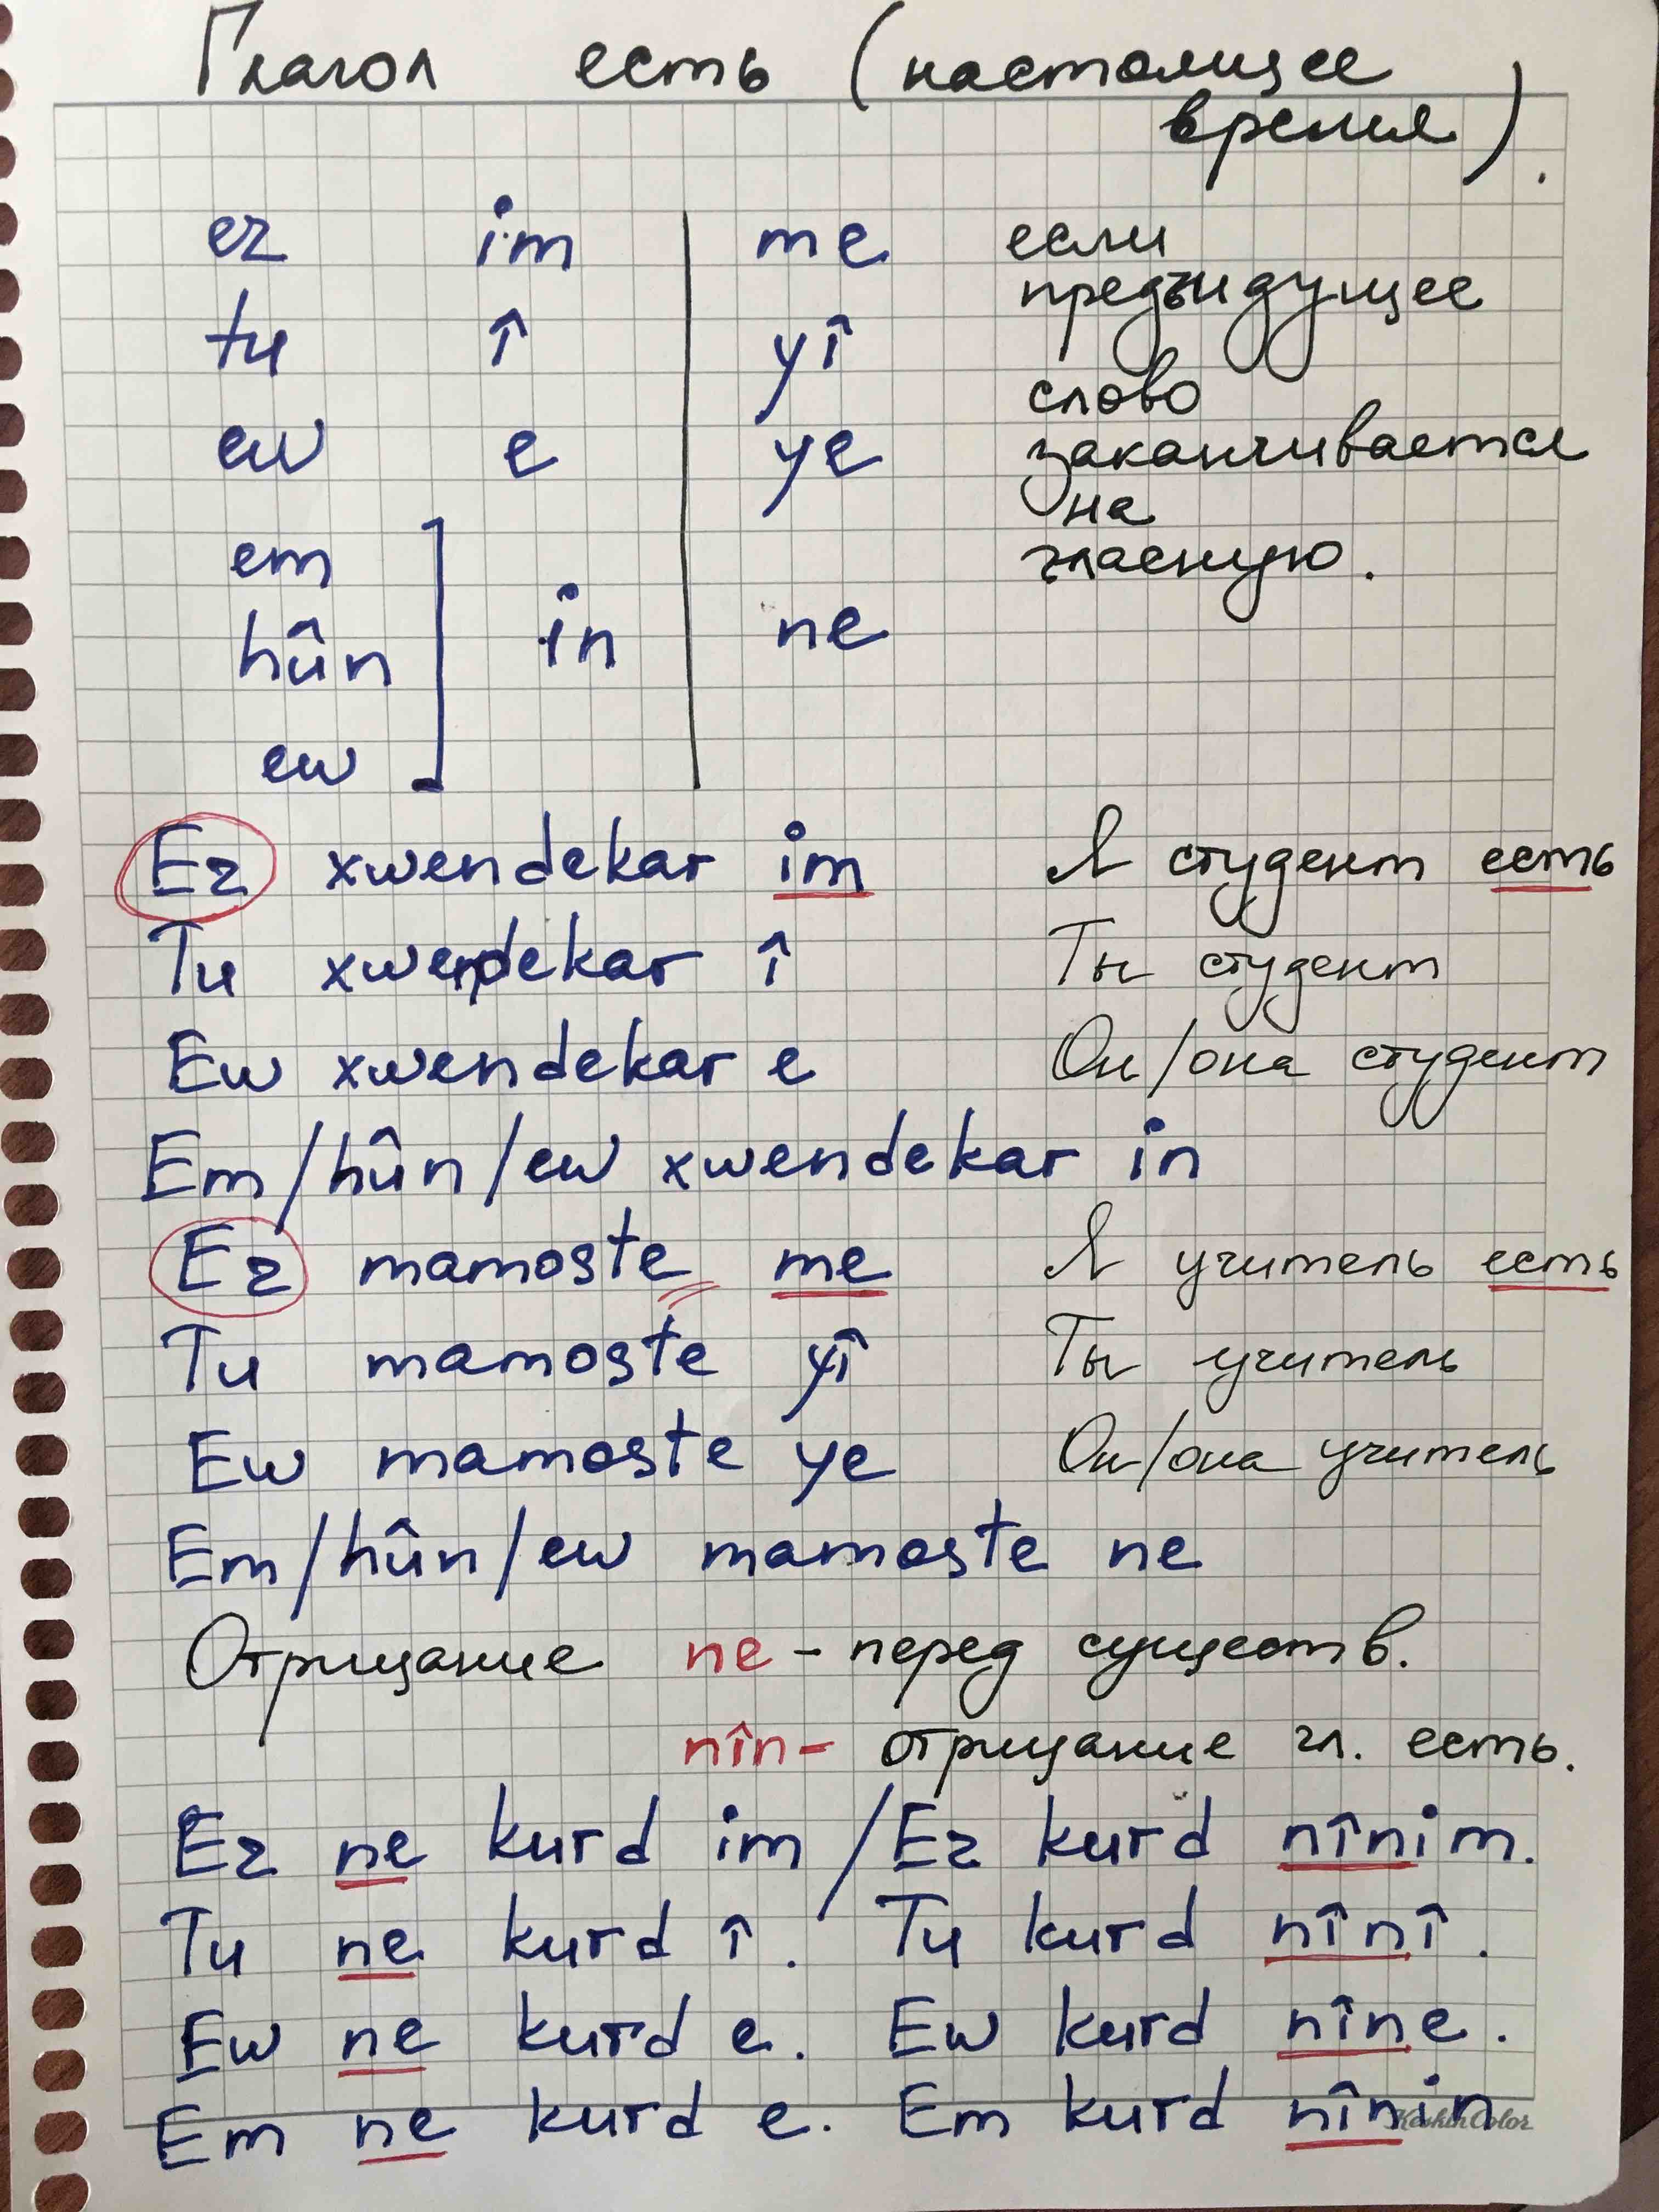 Глагол есть (настоящее
время).
ez im me если
предыдущее
tu î yî
слово
ew e ye заканчивается
на
em гласную.
hûn in ne
ew
Ez xwendekar im Я студент есть
Tu xwendekar î Ты студент
Ew xwendekar e Он/она студент
Em/hûn/ew xwendekar in
Ez mamoste me Я учитель есть
Tu mamoste yî Ты учитель
Ew mamoste ye Он/она учитель
Em/hûn/ew mamoste ne
Отрицание ne - перед существ.
nîn- отрицание гл. есть.
Ez ne kurd im / Ez kurd nînim.
Tu ne kurd î. Tu kurd nînî.
Ew ne kurd e. Ew kurd nîne.
Em ne kurd e. Em kurd nînin
KeskinColor